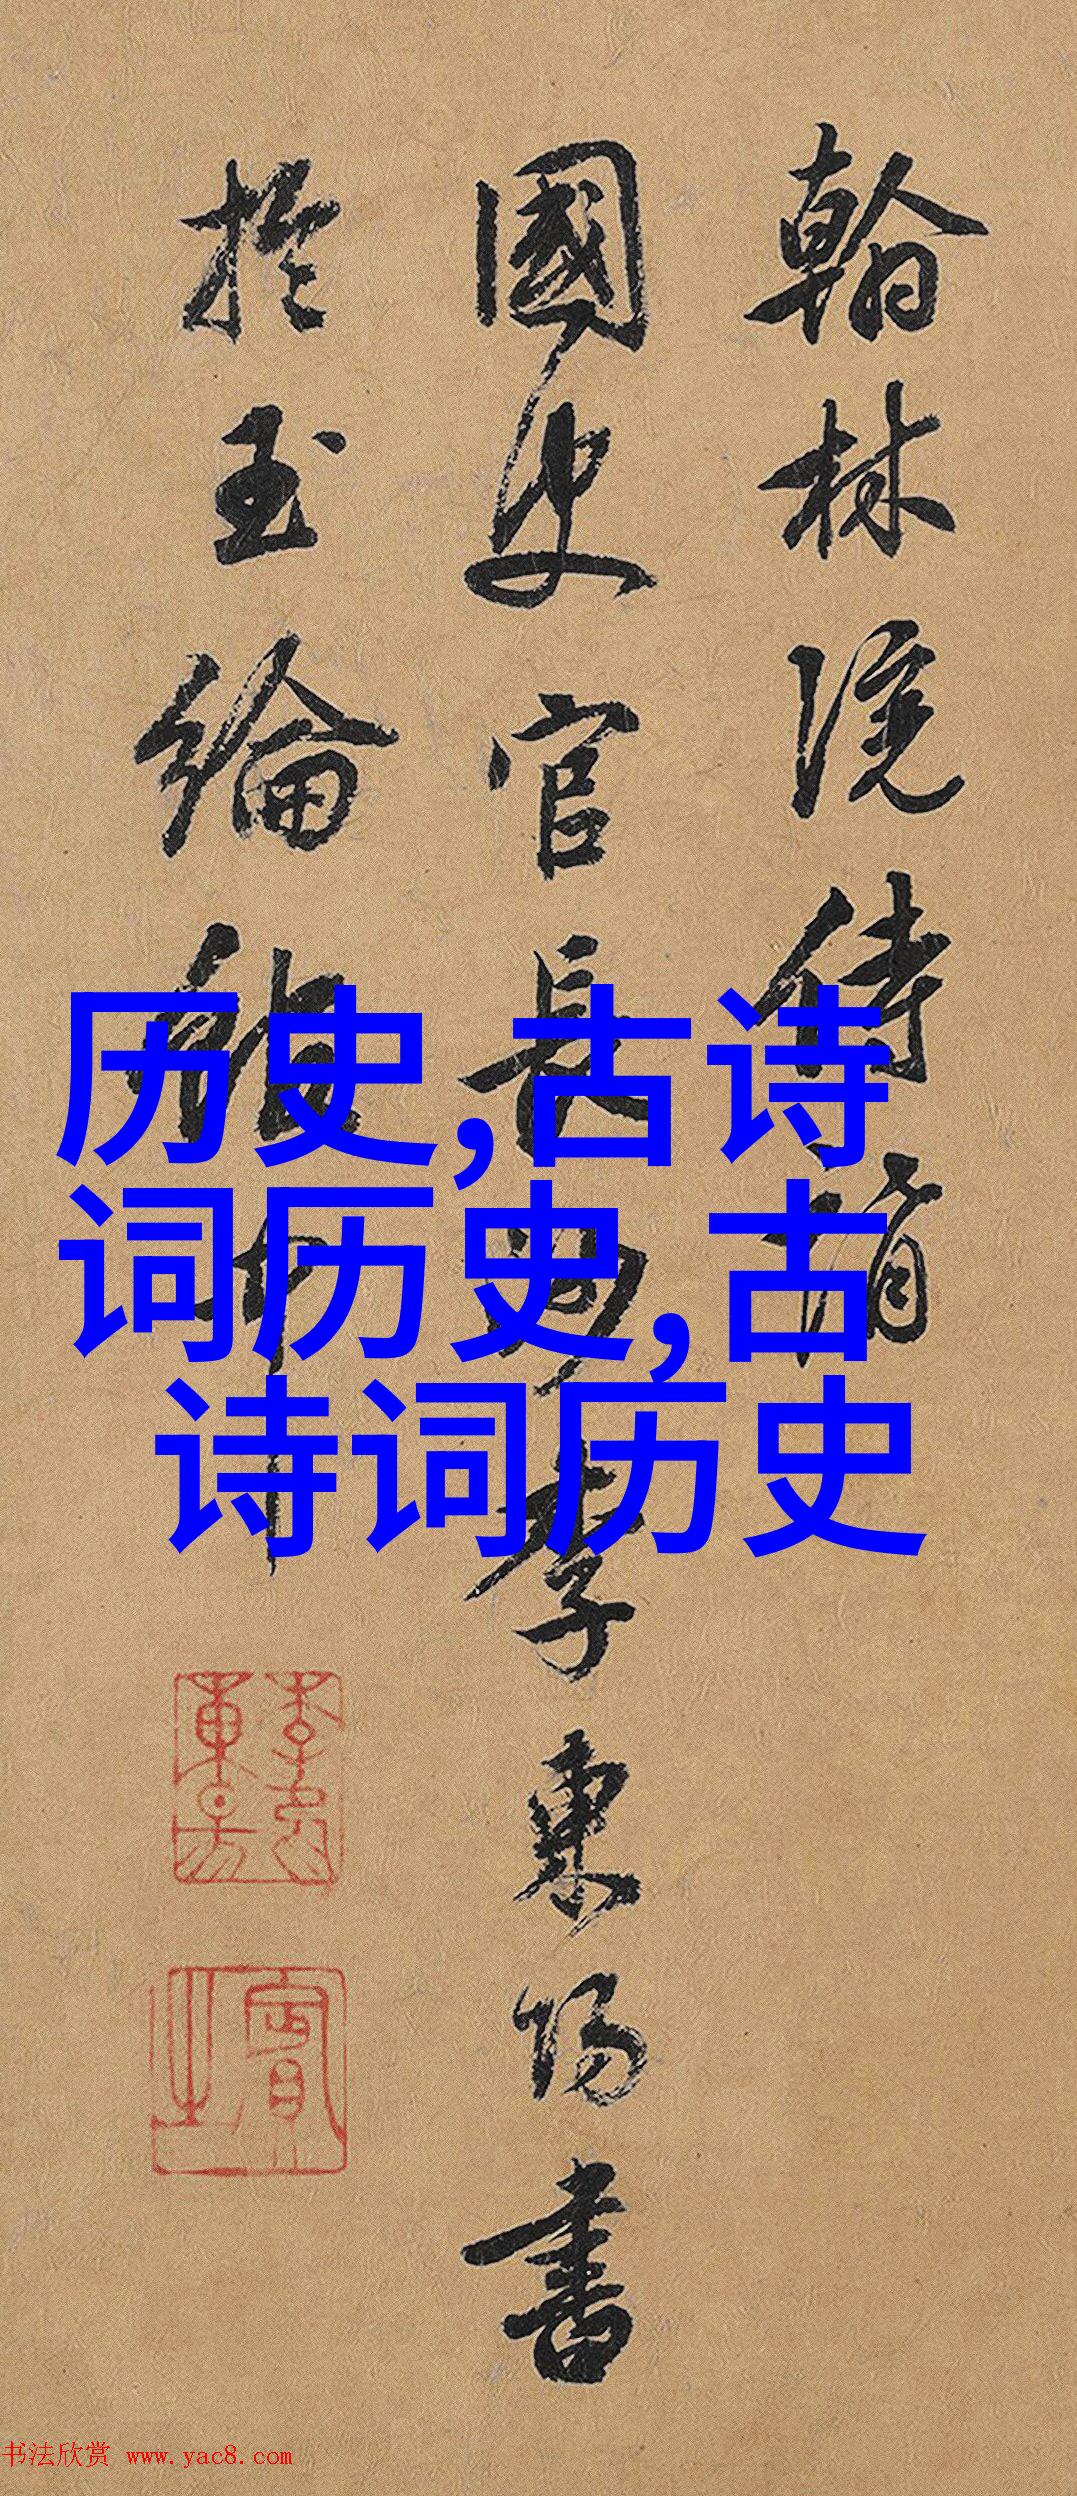 翰林院侍讀
國史官長沙李東陽書
於玉綸
历史,古诗
词历史,古
诗词历史
书法欣赏 www.yac8.com